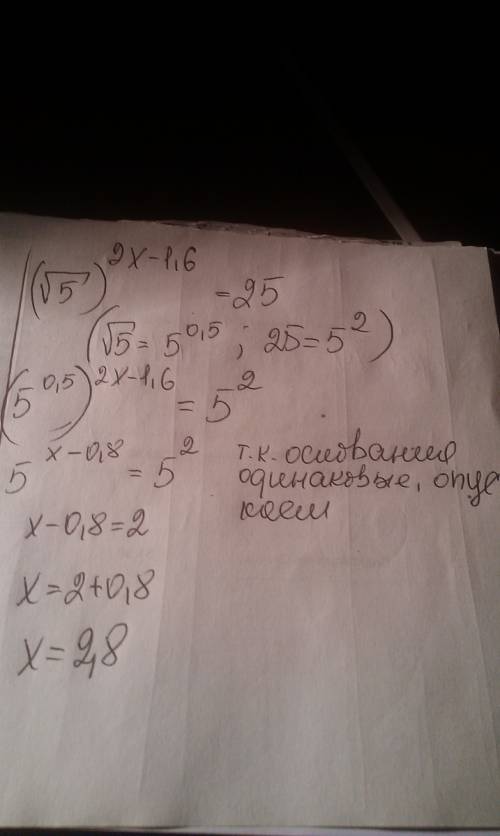 (√5)^{2x-1,6} = 25
(√5 = 5^{0,5} ; 25 = 5^2)
(5^{0,5})^{2x-1,6} = 5^2
5^{x-0,8} = 5^2 т.к. основания
одинаковые, опус
каем
x-0,8=2
x=2+0,8
x=2,8